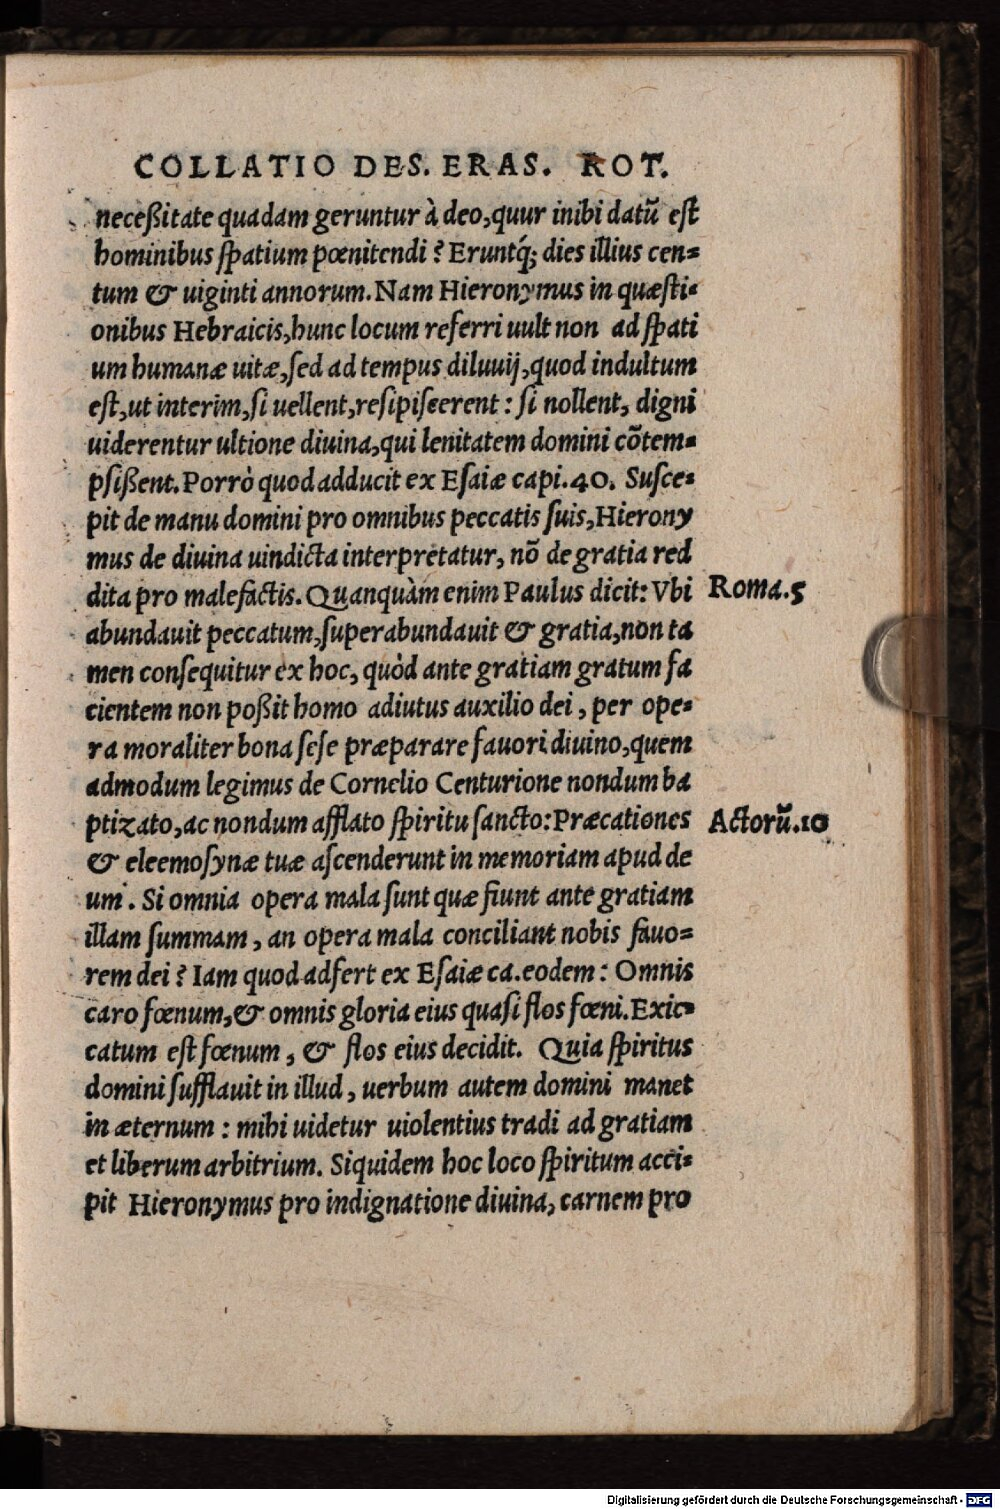 COLLATIO DES. ERAS. ROT.
neceßitate quadam geruntur à deo, quur inibi datũ est
hominibus spatium pœnitendi? Eruntq́; dies illius cen=
tum & uiginti annorum. Nam Hieronymus in quæsti=
onibus Hebraicis, hunc locum referri uult non ad spati
um humanæ uitæ, sed ad tempus diluuij, quod indultum
est, ut interim, si uellent, resipiscerent: si nollent, digni
uiderentur ultione diuina, qui lenitatem domini cõtem=
psißent. Porrò quod adducit ex Esaiæ capi. 40. Susce=
pit de manu domini pro omnibus peccatis suis, Hierony
mus de diuina uindicta interpretatur, nõ de gratia red
dita pro malefactis. Quanquàm enim Paulus dicit: Vbi Roma. 5
abundauit peccatum, superabundauit & gratia, non ta
men consequitur ex hoc, quòd ante gratiam gratum fa
cientem non poßit homo adiutus auxilio dei, per ope=
ra moraliter bona sese præparare fauori diuino, quem
admodum legimus de Cornelio Centurione nondum ba
ptizato, ac nondum afflato spiritu sancto: Præcationes Actorũ. 10
& eleemosynæ tuæ ascenderunt in memoriam apud de
um. Si omnia opera mala sunt quæ fiunt ante gratiam
illam summam, an opera mala conciliant nobis fauo=
rem dei? Iam quod adfert ex Esaiæ ca. eodem: Omnis
caro fœnum, & omnis gloria eius quasi flos fœni. Exic=
catum est fœnum, & flos eius decidit. Quia spiritus
domini sufflauit in illud, uerbum autem domini manet
in æternum: mihi uidetur uiolentius tradi ad gratiam
et liberum arbitrium. Siquidem hoc loco spiritum acci=
pit Hieronymus pro indignatione diuina, carnem pro
Digitalisierung gefördert durch die Deutsche Forschungsgemeinschaft - DFG